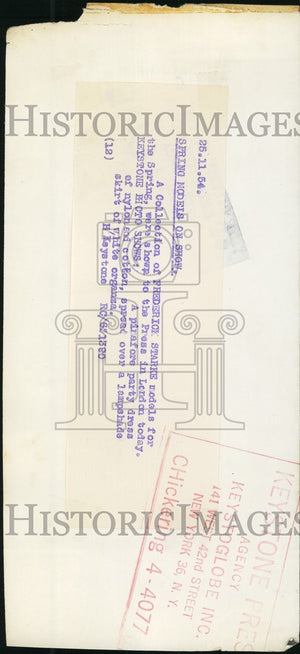 25.11.54.
SPRING MODELS ON SHOW.
A Collection of FREDERICK STARKE models for
the Spring, were shown to the Press in London today.
KEYSTONE PHOTO SHOWS: A pinafore party dress
of nylon and cotton, spread over a lampshade
skirt of white organza.
(12) H/Keystone
KEYSTONE PRES
AGENCY
INC.
141 WEST 42nd STREET
NEW YORK 36, N. Y.
CHickering 4-4077
HISTORICIMAGES
HISTORICIMAGES
HISTORICIMAGES
HISTORICIMAGES